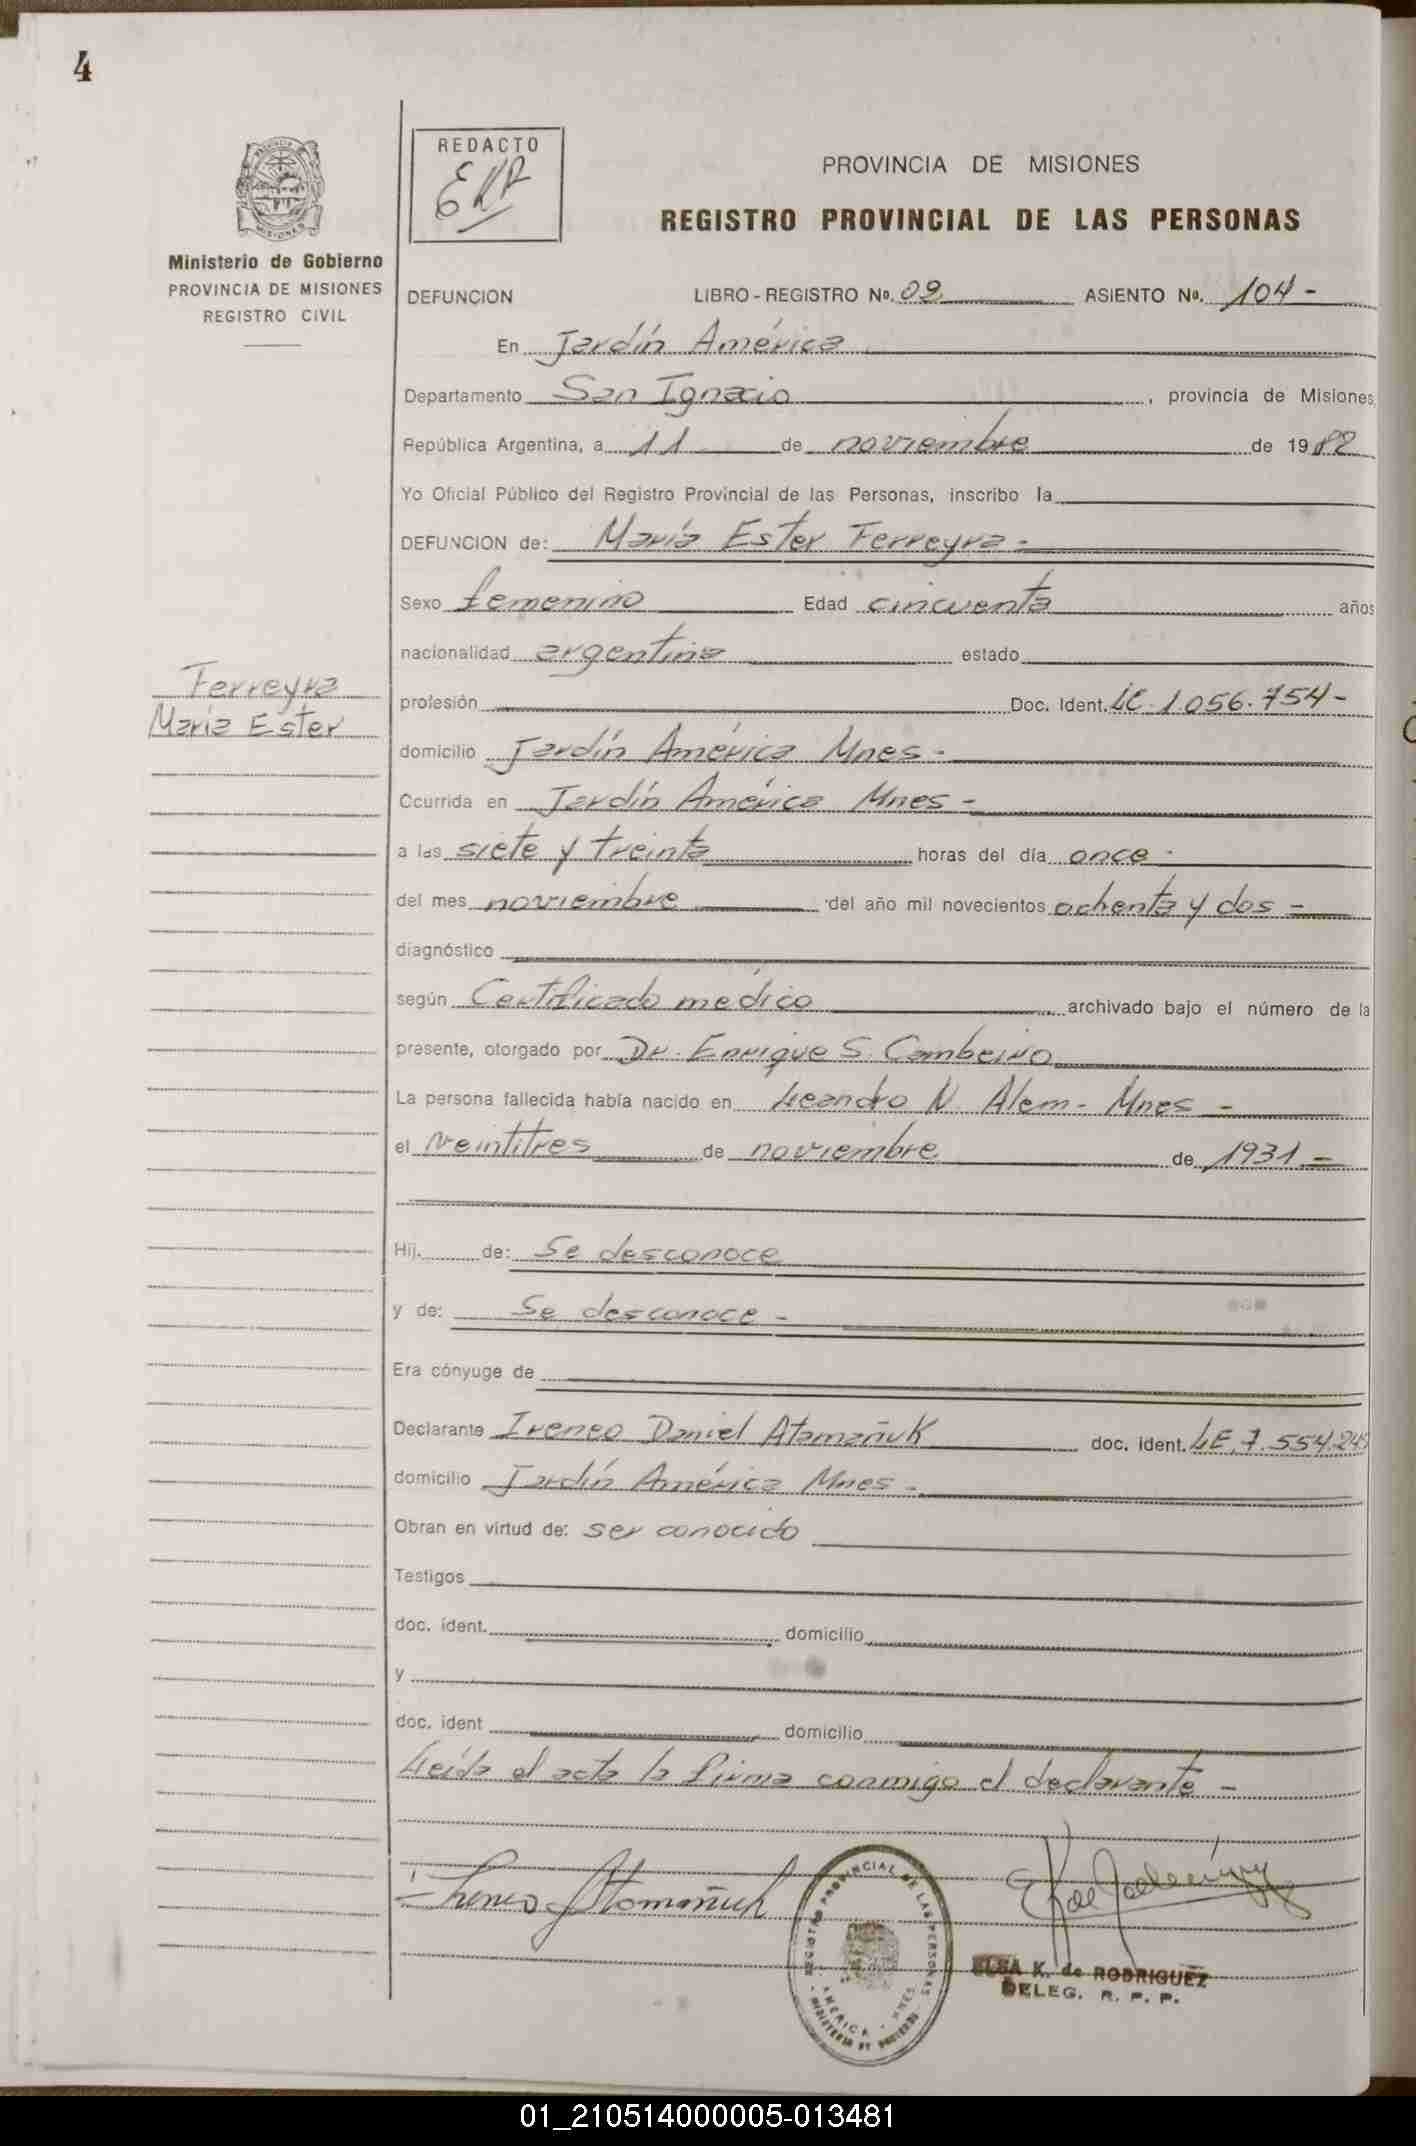 4
REDACTO
EKR
PROVINCIA DE MISIONES
REGISTRO PROVINCIAL DE LAS PERSONAS
Ministerio de Gobierno
PROVINCIA DE MISIONES
REGISTRO CIVIL
DEFUNCION LIBRO-REGISTRO Nº. 02 ASIENTO Nº. 104-
En Jardín América
Departamento San Ignacio, provincia de Misiones,
República Argentina, a 11 de noviembre de 1982
Yo Oficial Público del Registro Provincial de las Personas, inscribo la
DEFUNCION de: María Ester Ferreyra-
Sexo femenino Edad cincuenta años
nacionalidad argentina estado
Ferreyra
María Ester
profesión Doc. Ident. LC. 1.056.754-
domicilio Jardín América Mnes-
Ocurrida en Jardín América Mnes-
a las siete y treinta horas del día once-
del mes noviembre del año mil novecientos ochenta y dos-
diagnóstico
según Certificado médico archivado bajo el número de la
presente, otorgado por Dr. Enrique S. Cambeiro
La persona fallecida había nacido en Leandro N. Alem- Mnes-
el veintitres de noviembre de 1931-
Hij. de: Se desconoce
y de: Se desconoce-
Era cónyuge de
Declarante Ireneo Daniel Atamañuk doc. ident. LE. 7.554.243
domicilio Jardín América Mnes-
Obran en virtud de: ser conocido
Testigos
doc. ident. domicilio
y
doc. ident domicilio
Leída el acta la firma conmigo el declarante-
Ireneo Atamañuk
REGISTRO PROVINCIAL DE LAS PERSONAS
AMERICA - MNES
MINISTERIO DE GOBIERNO
ELSA K. de RODRIGUEZ
DELEG. R. P. P.
01_210514000005-013481